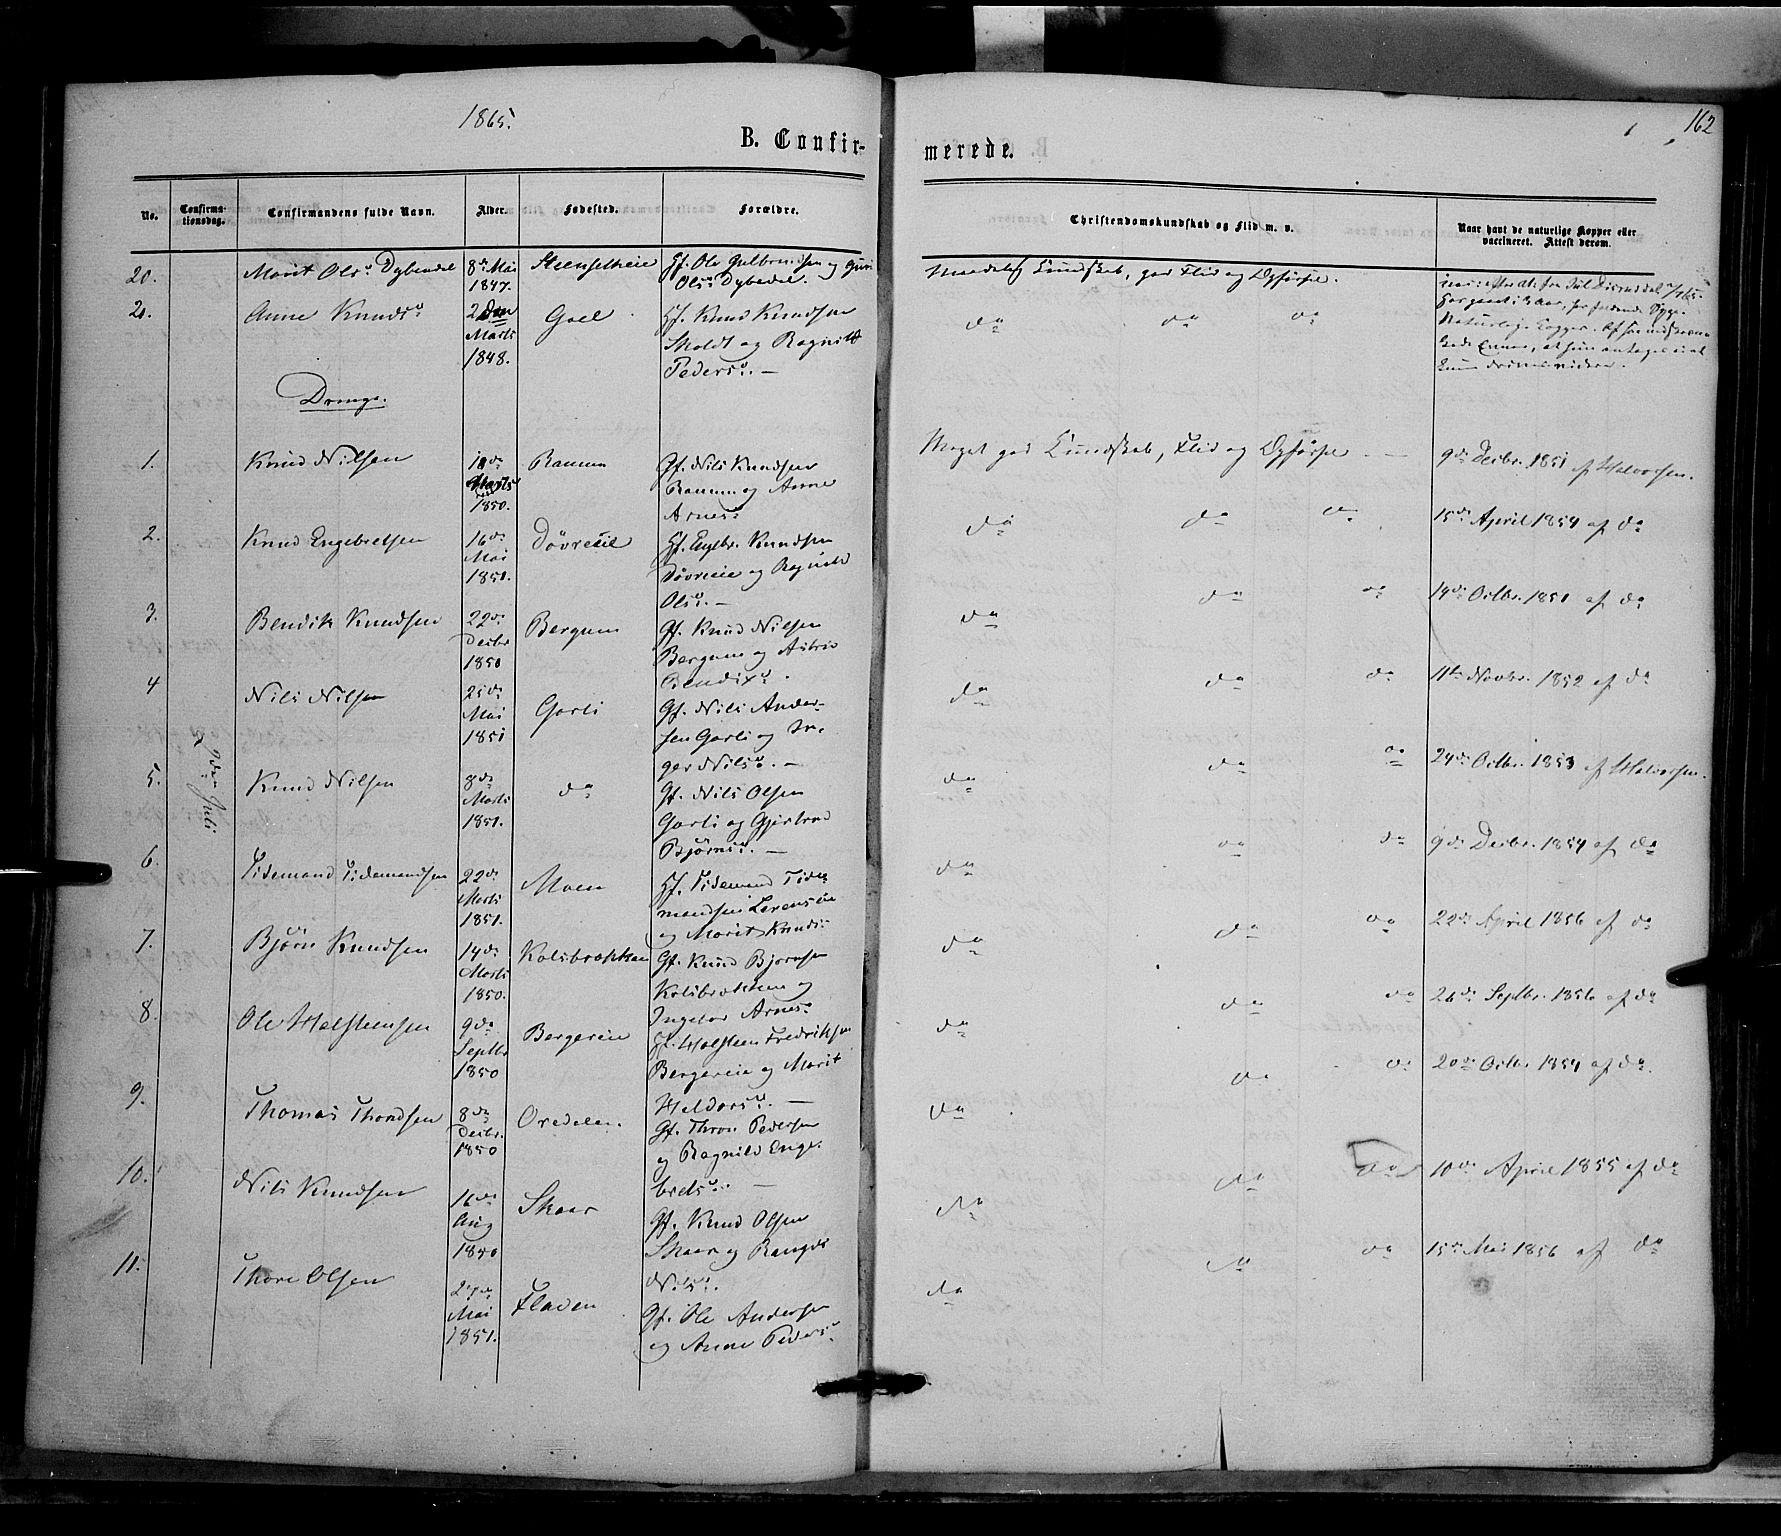 1865.
162
B. Confir-
merede.
No.
Confirma-
tionsdag.
Confirmandens fulde Navn.
Alder.
Fødested.
Forældre.
Christendomskundskab og Flid m. v.
Naar havt de naturlige Kopper eller
vaccineret. Attest derom.
20. Marit Ols: Dybendal 8de Mai Gf. Ole Gulbrandsen og Guri
1847. Ols: Dybedal.
Kundskab, god Flid og Opførsel.
21. Anne Knuds: 2den Goel Hf. Knud Knudsen do do do
Marts og Ragnild
1848. Peders: —
Drenge.
1. Knud Nilsen 18de Ranum Gf. Nils Knudsen Meget god Kundskab, Flid og Opførsel — 9de Decbr. 1851 af Halvorsen.
Marts Ranum og Anne
1850. Arnes:
2. Knud Engebretsen 16de Gf. Engbr. Knudsen do do do 15de April 1854 af do
Mai og Ragnild
1851. Ols: —
3. Bendik Knudsen 22de Bergum Gf. Knud Nilsen do do do 14de Octbr. 1851 af do
Decbr Bergum og Astri
1850 Bendix:
4 Nils Nilsen 25de Garli Gf. Nils Ander- do do do 11te Novbr. 1852 af do
Mai sen Garli og In-
1851 ger Nils: —
7de Juli
5. Knud Nilsen 8de do Gf. Nils Olsen do do do 24de Octbr. 1853 af Halvorsen.
Marts Garli og Gjertrud
1851. Bjørns: —
6. Tidemand Tidemandsen 22de Moen Hf. Tidemand Tide- do do do 9de Decbr. 1854 af do
Marts mandsen
1851. og Marit Knuds:
7. Bjørn Knudsen 14de Kolsbrækken Gf. Knud Bjørnsen do do do 22de April 1856 af do
Marts Kolsbrækken og
1850. Ingebor Arnes:
8. Ole Halstensen 9de Bergereie Hf. Halsteen Fredriksen do do do 26de Septbr. 1856 af do
Septbr Bergereie og Marit
1850 Haldors: —
9. Thomas Thordsen 8de Oredalen. Gf. Thron Pedersen do do do 20de Octbr. 1854 af do.
Decbr. og Ragnild Enge-
1850 brets: —
10. Nils Knudsen 16de Skaar Gf. Knud Olsen do do do 10de April 1855 af do
Aug Skaar og
1850 Nils:
11. Thore Olsen 27de Fladen Gf. Ole Andersen do do do 15de Mai 1856 af do
Mai og Anne Peders:
1851.